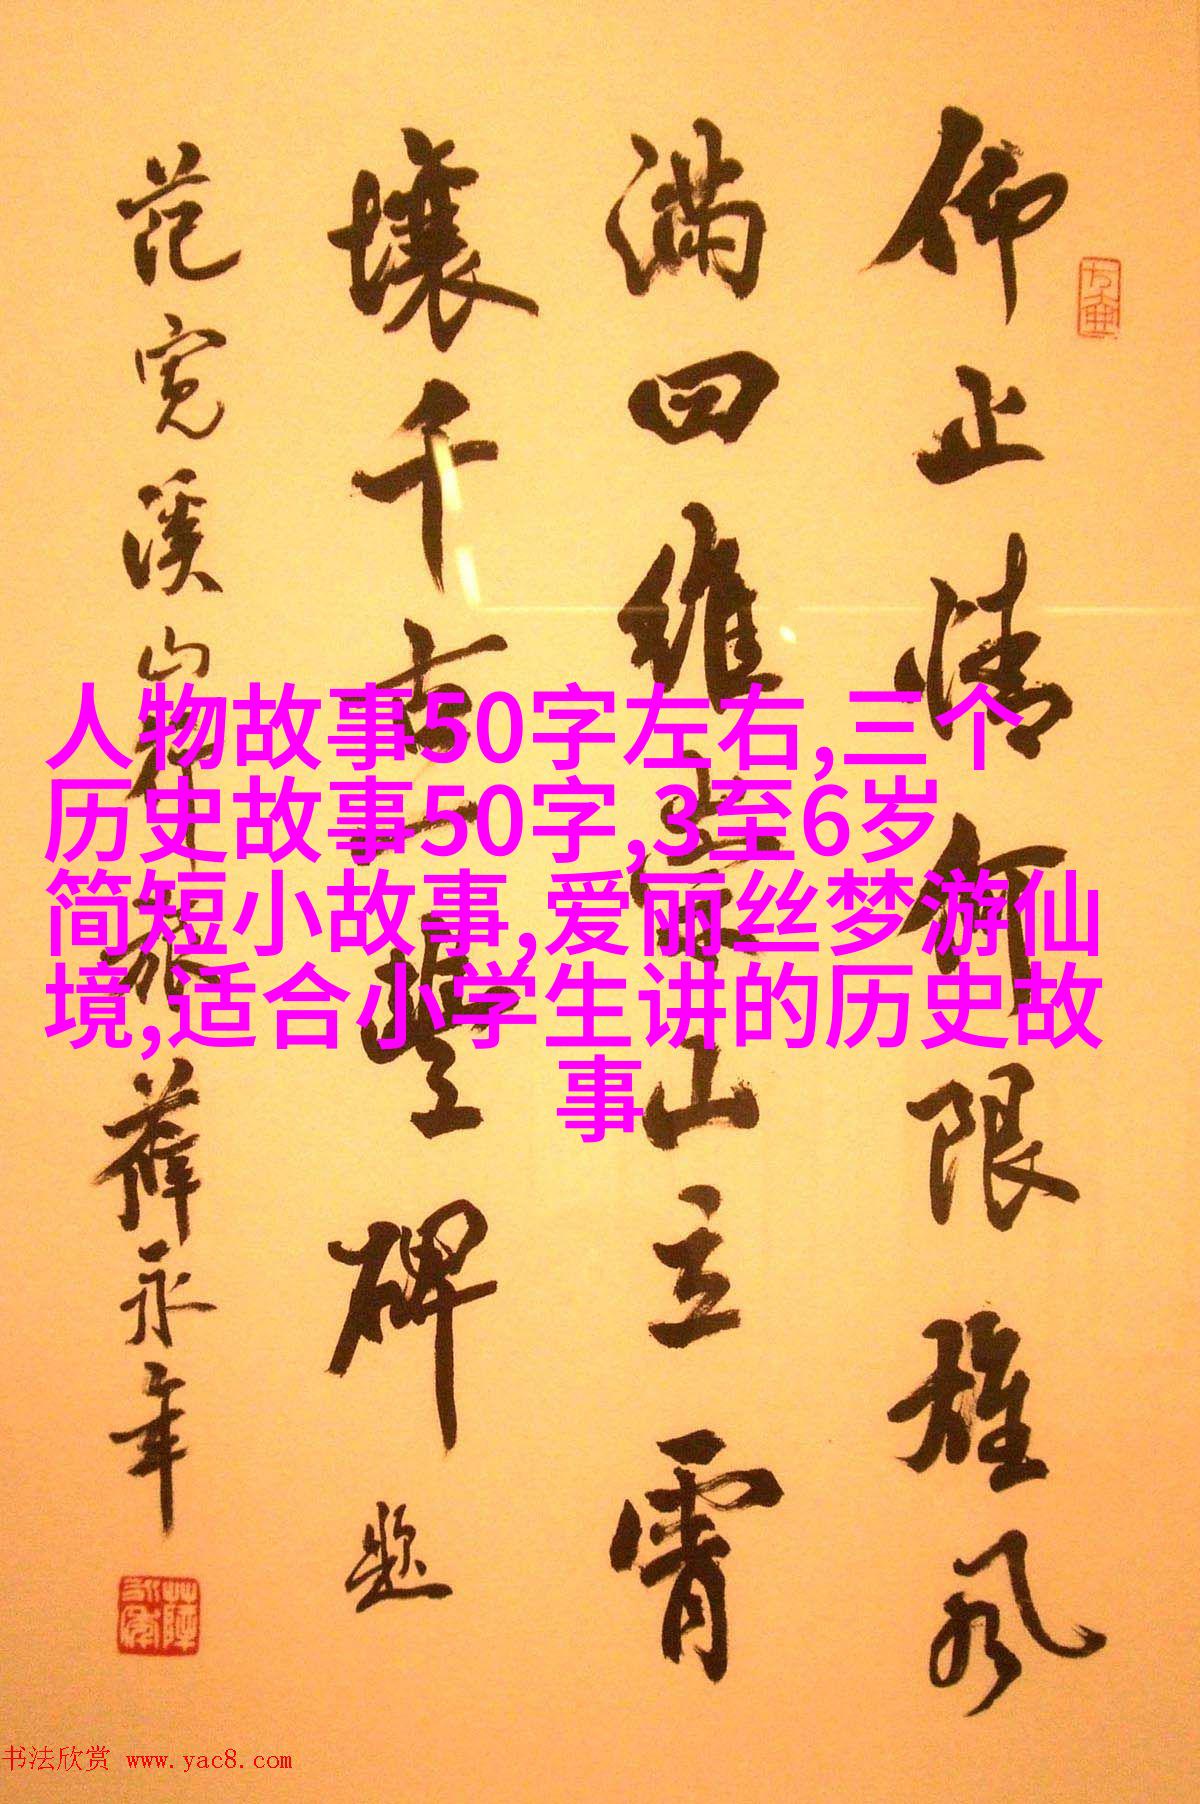 仰止情何限雄风
满四维崇山立霄
壤千古一丰碑 题
范宽溪山行旅 薛永年
人物故事50字左右,三个
历史故事50字,3至6岁
简短小故事,爱丽丝梦游仙
境,适合小学生讲的历史故
事
书法欣赏 www.yac8.com